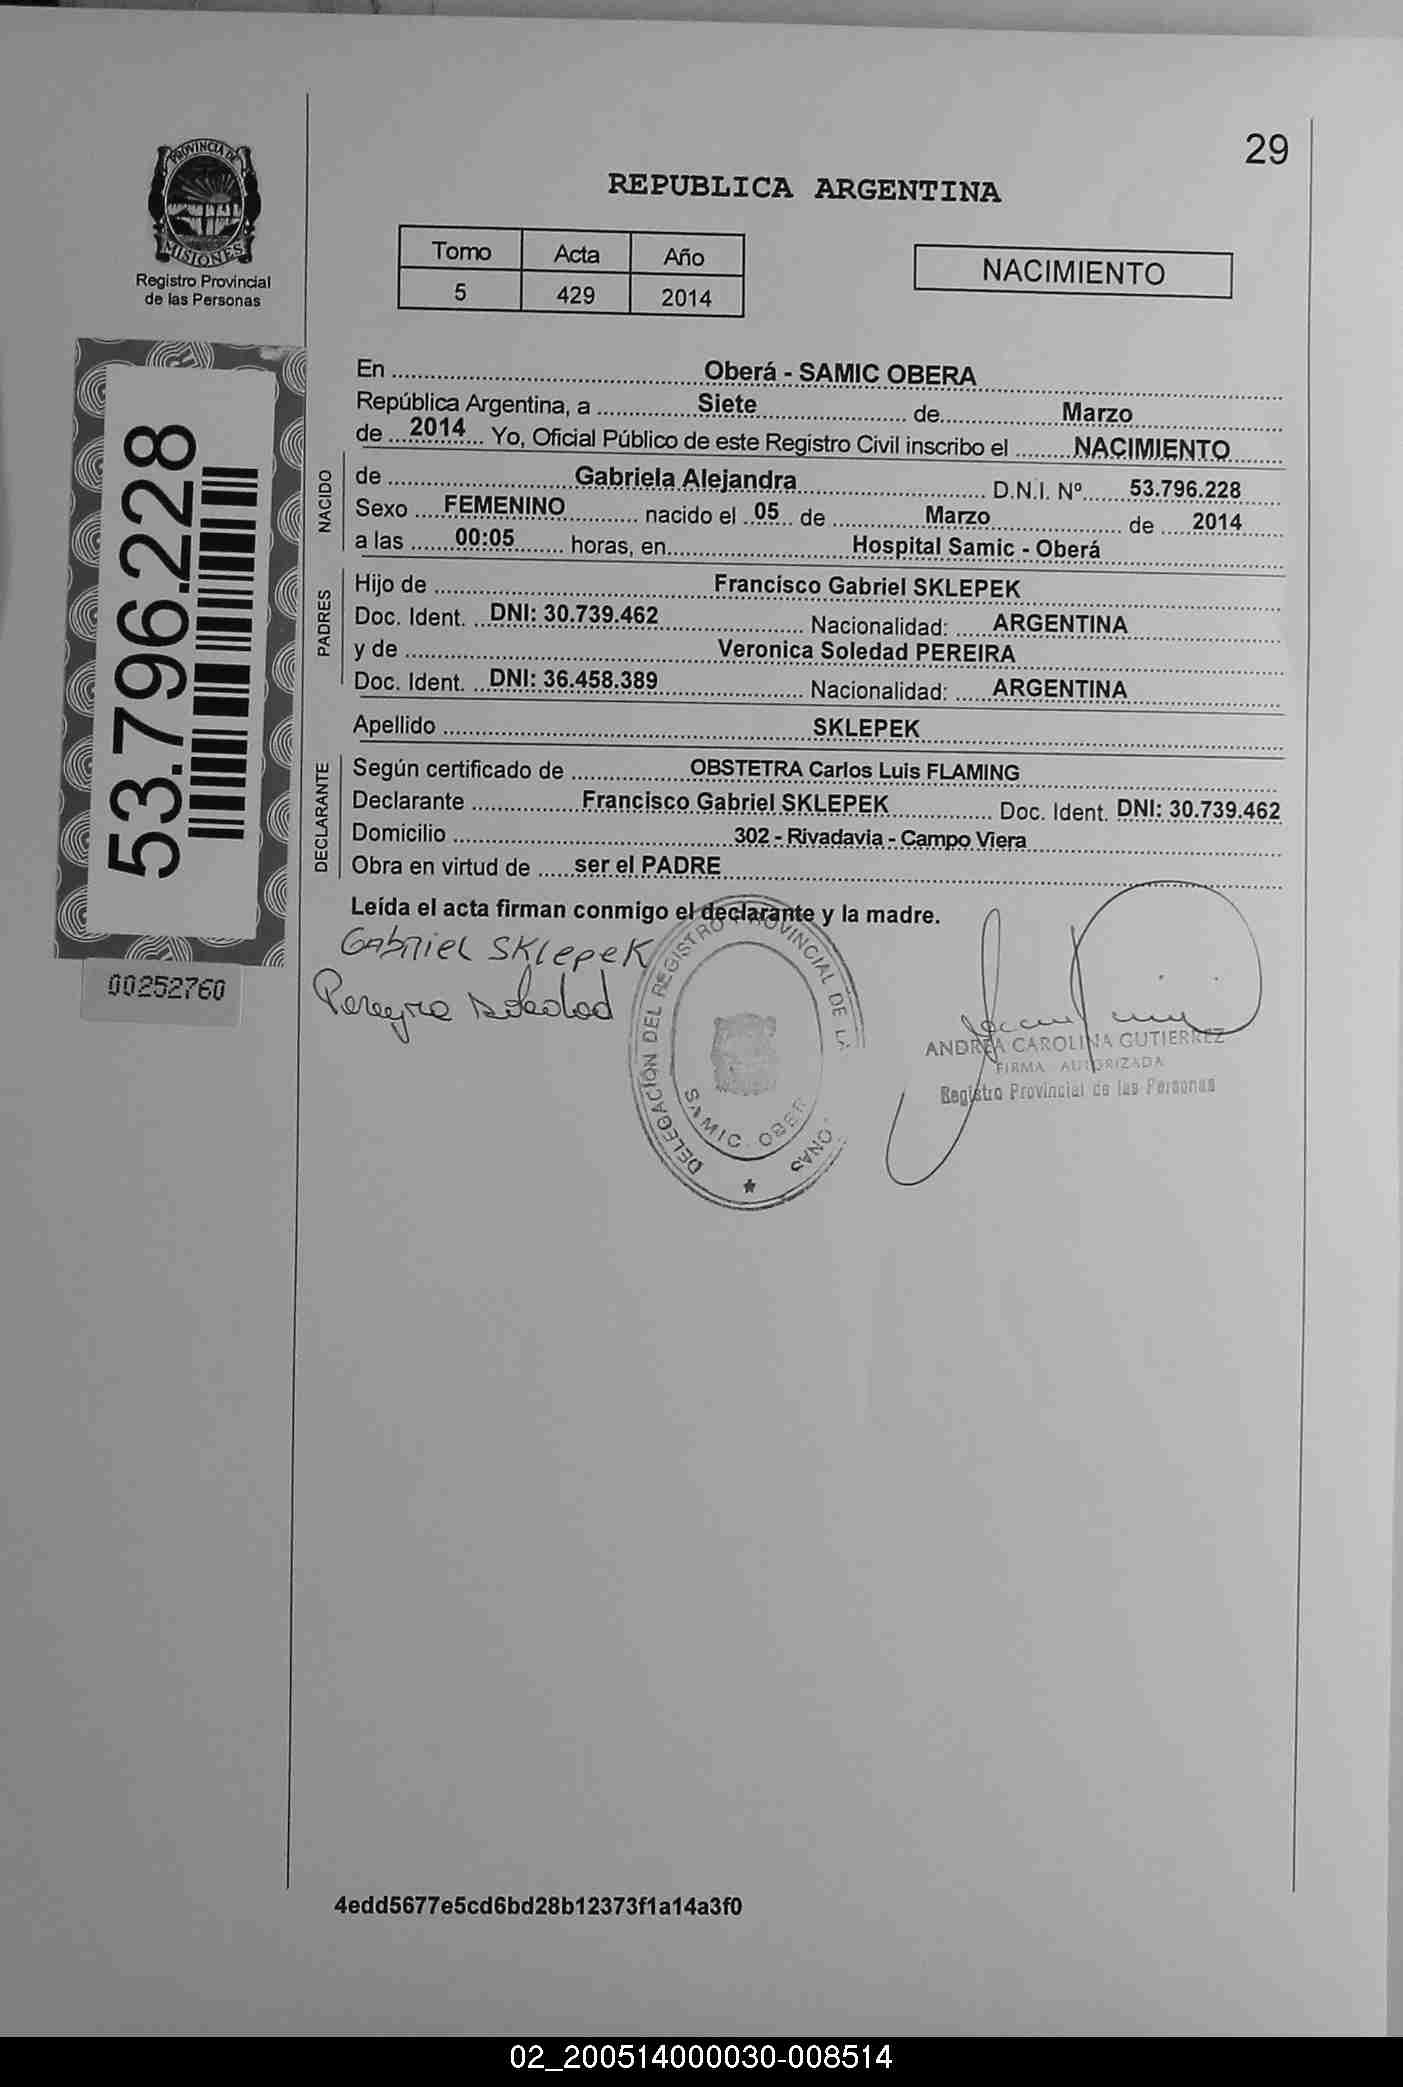 29
PROVINCIA DE
MISIONES
Registro Provincial
de las Personas
REPUBLICA ARGENTINA
Tomo Acta Año
5 429 2014
NACIMIENTO
53.796.228
00252760
En Oberá - SAMIC OBERA
República Argentina, a Siete de Marzo
de 2014 Yo, Oficial Público de este Registro Civil inscribo el NACIMIENTO
NACIDO
de Gabriela Alejandra D.N.I. Nº 53.796.228
Sexo FEMENINO nacido el 05 de Marzo de 2014
a las 00:05 horas, en Hospital Samic - Oberá
PADRES
Hijo de Francisco Gabriel SKLEPEK
Doc. Ident. DNI: 30.739.462 Nacionalidad: ARGENTINA
y de Veronica Soledad PEREIRA
Doc. Ident. DNI: 36.458.389 Nacionalidad: ARGENTINA
Apellido SKLEPEK
DECLARANTE
Según certificado de OBSTETRA Carlos Luis FLAMING
Declarante Francisco Gabriel SKLEPEK Doc. Ident. DNI: 30.739.462
Domicilio 302 - Rivadavia - Campo Viera
Obra en virtud de ser el PADRE
Leída el acta firman conmigo el declarante y la madre.
Gabriel SKlepeK
Pereyra Soledad
DELEGACIÓN DEL REGISTRO PROVINCIAL DE LA
SAMIC OBER
ANDREA CAROLINA GUTIERREZ
FIRMA AUTORIZADA
Registro Provincial de las Personas
4edd5677e5cd6bd28b12373f1a14a3f0
02_200514000030-008514